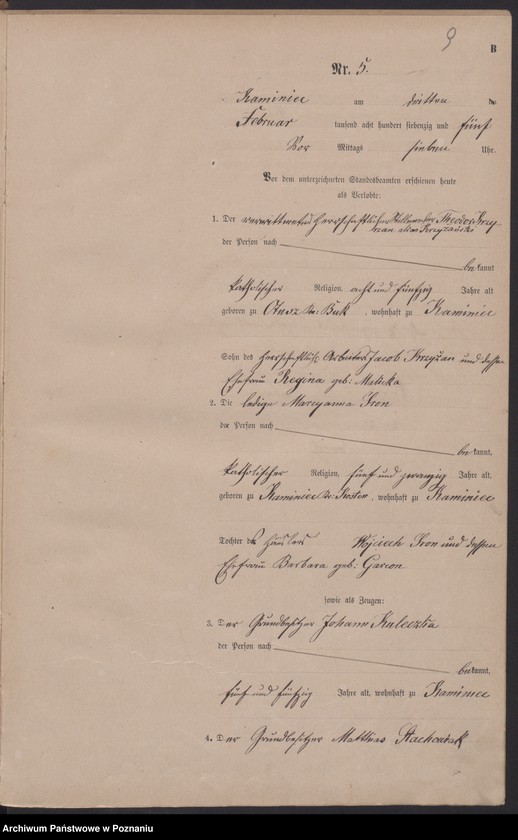 9
B
Nr. 5.
Kaminiec am dritten
Februar tausend acht hundert siebenzig und fünf
Vor Mittags sieben Uhr.
Vor dem unterzeichneten Standesbeamten erschienen heute
als Verlobte:
1. Der verwittwete herrschaftliche Theodor Krzy-
zan alias Krzyżański
der Person nach
bekannt
katholischer Religion, acht und fünfzig Jahre alt
geboren zu Otusz Kr: Buk, wohnhaft zu Kaminiec
Sohn des herrschaftlich: Arbeiters Jacob Krzyżan und dessen
Ehefrau Regina geb: Malicka
2. Die ledige Maryanna Dron
der Person nach
bekannt,
katholischer Religion, fünf und zwanzig Jahre alt,
geboren zu Kaminiec Kr: Kosten, wohnhaft zu Kaminiec
Tochter des Häusler Wojciech Dron und dessen
Ehefrau Barbara geb:
sowie als Zeugen:
3. Der Grundbesitzer Johann Kuleczka
der Person nach
bekannt,
fünf und fünfzig Jahre alt, wohnhaft zu Kaminiec
4. Der Grundbesitzer Matthias Stachowiak
Archiwum Państwowe w Poznaniu